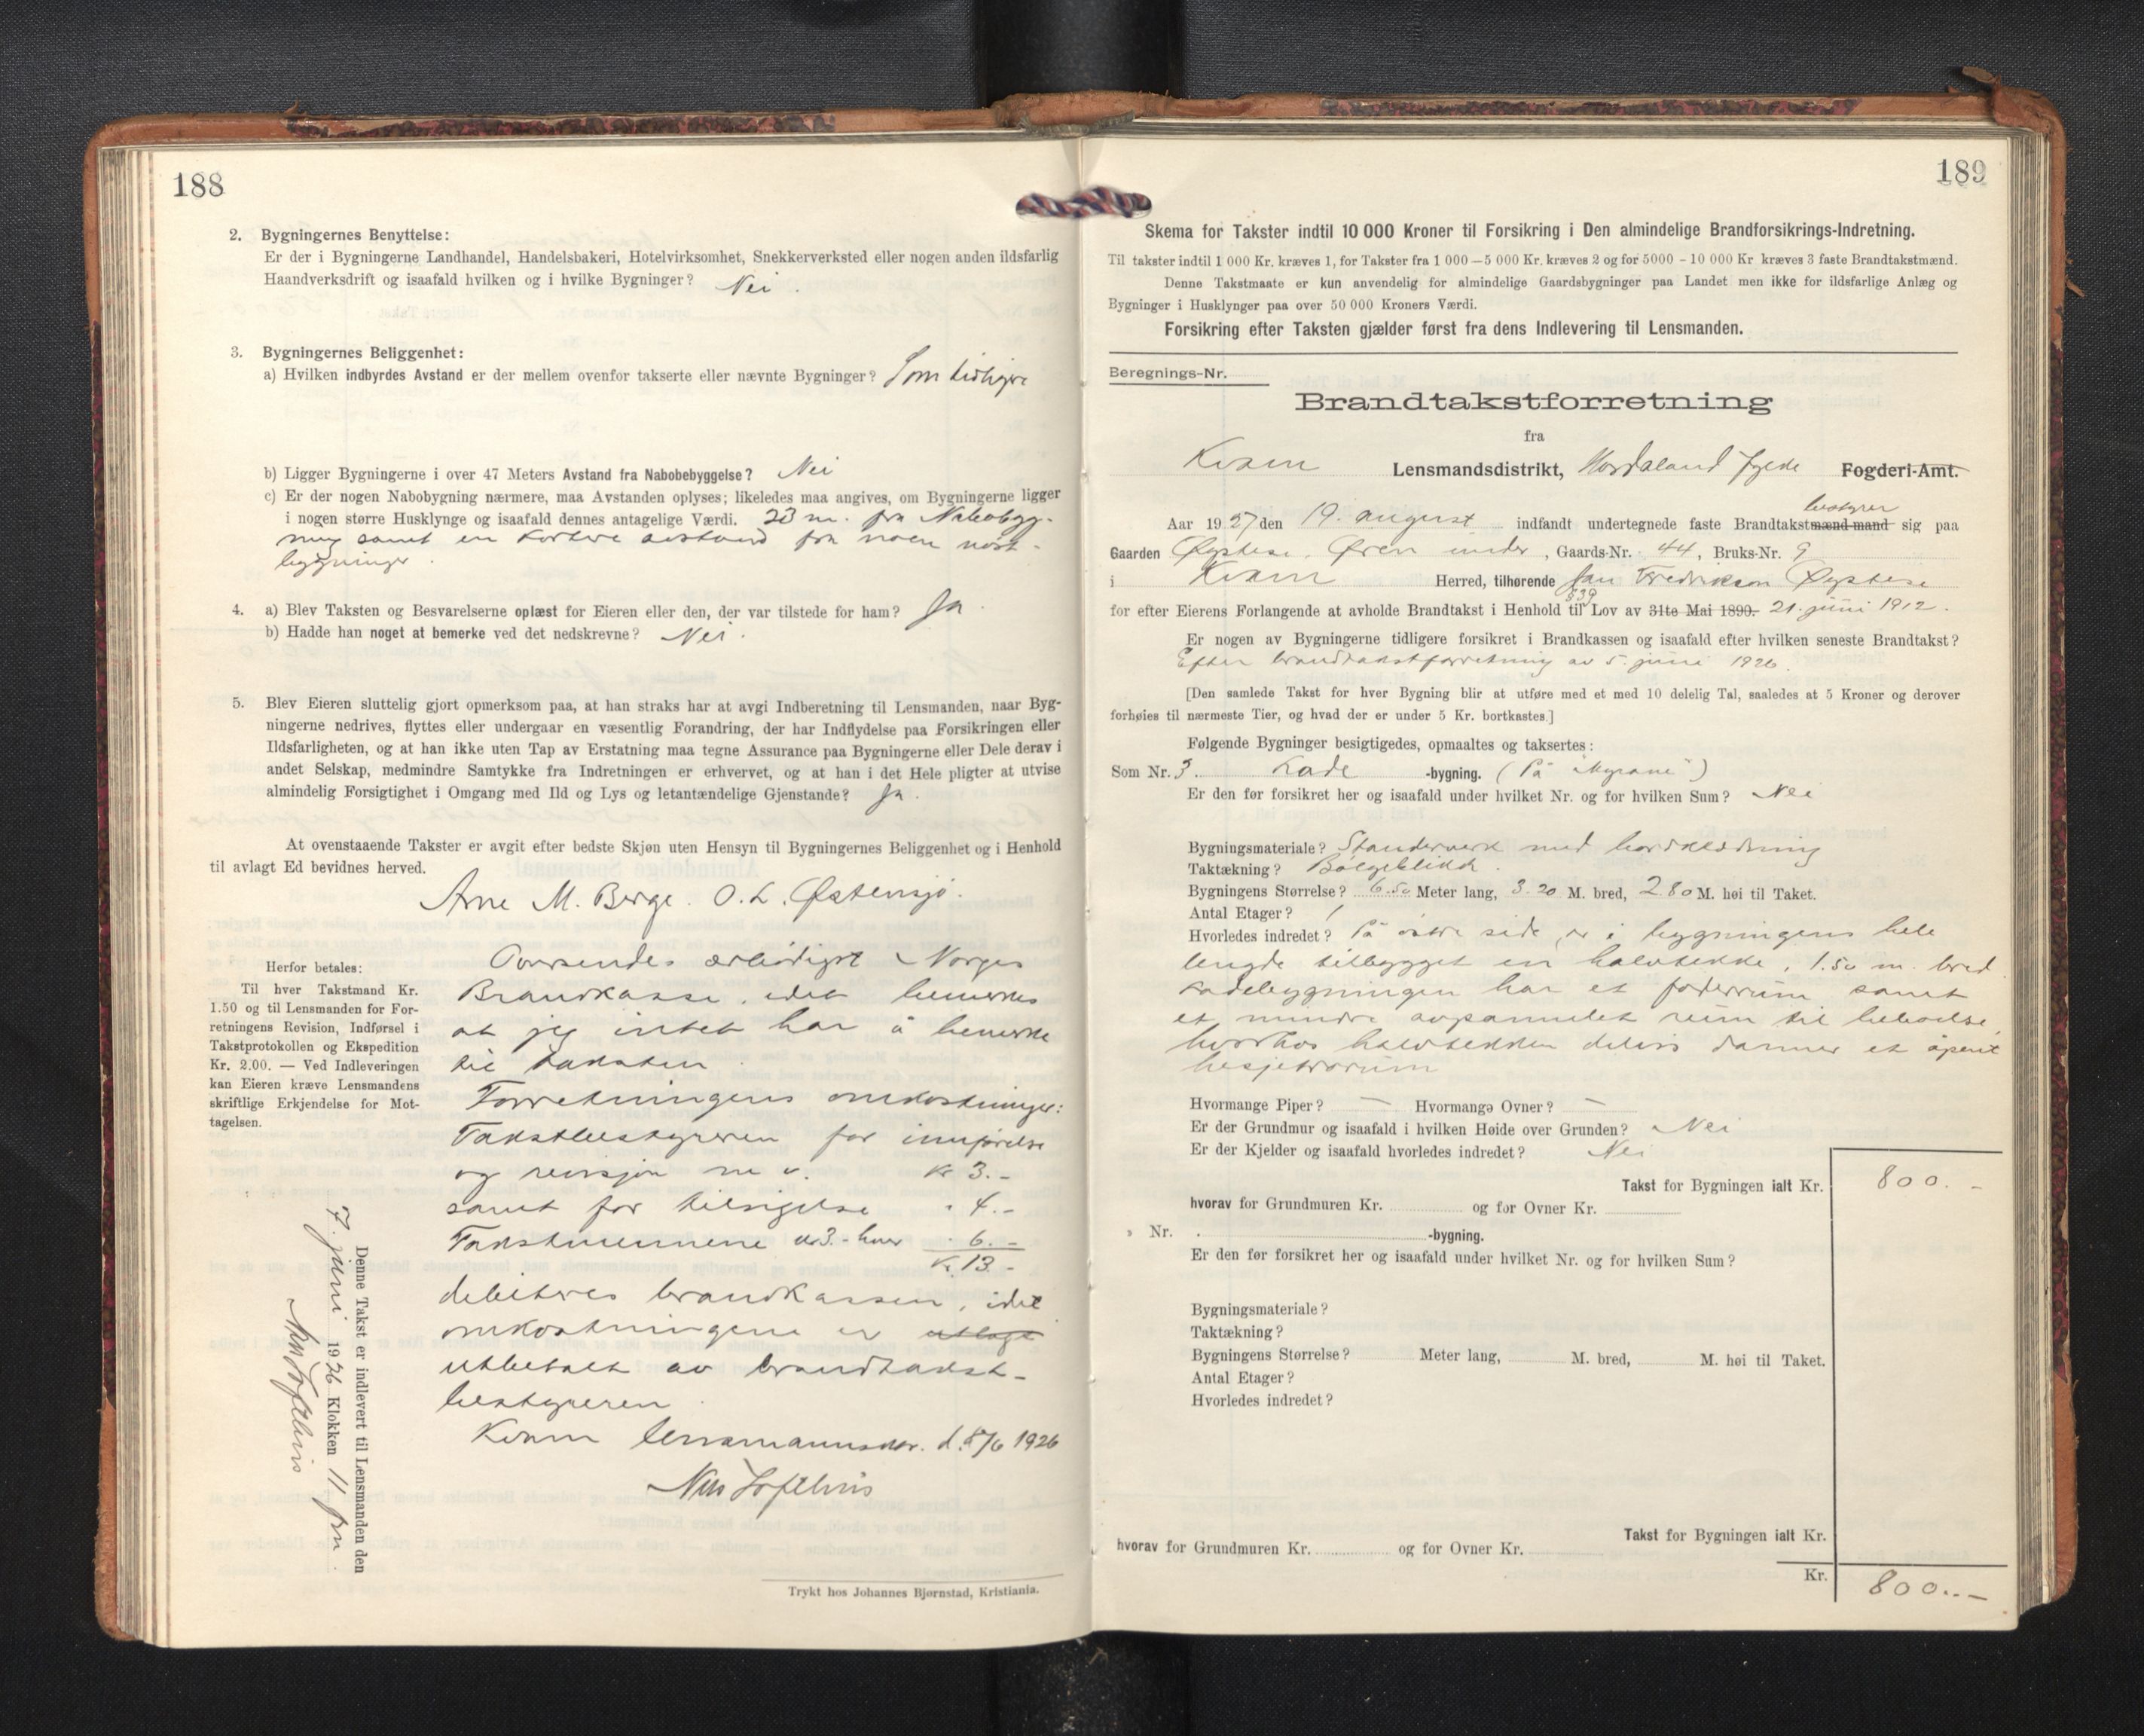 188
2. Bygningernes Benyttelse:
Er der i Bygningerne Landhandel, Handelsbakeri, Hotelvirksomhet, Snekkerverksted eller nogen anden ildsfarlig
Haandverksdrift og isaafald hvilken og i hvilke Bygninger? Nei.
3. Bygningernes Beliggenhet:
a) Hvilken indbyrdes Avstand er der mellem ovenfor takserte eller nævnte Bygninger? Som tidligere
b) Ligger Bygningerne i over 47 Meters Avstand fra Nabobebyggelse? Nei
c) Er der nogen Nabobygning nærmere, maa Avstanden oplyses; likeledes maa angives, om Bygningerne ligger
i nogen større Husklynge og isaafald dennes antagelige Værdi. 23 m. fra Nabobyg-
ning samt en kortere avstand fra noen nøst-
bygninger.
4. a) Blev Taksten og Besvarelserne oplæst for Eieren eller den, der var tilstede for ham? Ja.
b) Hadde han noget at bemerke ved det nedskrevne? Nei.
5. Blev Eieren sluttelig gjort opmerksom paa, at han straks har at avgi Indberetning til Lensmanden, naar Byg-
ningerne nedrives, flyttes eller undergaar en væsentlig Forandring, der har Indflydelse paa Forsikringen eller
Ildsfarligheten, og at han ikke uten Tap av Erstatning maa tegne Assurance paa Bygningerne eller Dele derav i
andet Selskap, medmindre Samtykke fra Indretningen er erhvervet, og at han i det Hele pligter at utvise
almindelig Forsigtighet i Omgang med Ild og Lys og letantændelige Gjenstande? Ja.
At ovenstaaende Takster er avgit efter bedste Skjøn uten Hensyn til Bygningernes Beliggenhet og i Henhold
til avlagt Ed bevidnes herved.
Arne M. Berge. O. L. Østensjø.
Herfor betales:
Til hver Takstmand Kr.
1.50 og til Lensmanden for For-
retningens Revision, Indførsel i
Takstprotokollen og Ekspedition
Kr. 2.00. — Ved Indleveringen
kan Eieren kræve Lensmandens
skriftlige Erkjendelse for Mot-
tagelsen.
Oversendes ærbødigst Norges
Brandkasse, idet bemerkes
at jeg intet har å bemerke
til taksten.
Forretningens omkostninger:
Takstbestyreren for innførelse
og revisjon m v. Kr 3.-
samt for tilsigelse " 4.-
Takstmennene a 3.- hver " 6.-
Kr. 13.-
debiteres brandkassen, idet
omkostningene er utlagt
utbetalt av brandtakst-
bestyreren.
Kvam lensmannsktr. d. 8/6 1926
Nils Tofthus
Denne Takst er indlevert til Lensmanden den
7. juni 1926 Klokken 11 fm.
Nils Tofthus
Trykt hos Johannes Bjørnstad, Kristiania.
189
Skema for Takster indtil 10 000 Kroner til Forsikring i Den almindelige Brandforsikrings-Indretning.
Til takster indtil 1 000 Kr. kræves 1, for Takster fra 1 000—5 000 Kr. kræves 2 og for 5000 - 10 000 Kr kræves 3 faste Brandtakstmænd.
Denne Takstmaate er kun anvendelig for almindelige Gaardsbygninger paa Landet men ikke for ildsfarlige Anlæg og
Bygninger i Husklynger paa over 50 000 Kroners Værdi.
Forsikring efter Taksten gjælder først fra dens Indlevering til Lensmanden.
Beregnings-Nr.
Brandtakstforretning
fra
Kvam Lensmandsdistrikt, Hordaland fylde Fogderi-Amt.
bestyrer
Aar 1927 den 19. august indfandt undertegnede faste Brandtakstmænd mand sig paa
Gaarden Øystese, Øren indre, Gaards-Nr. 44, Bruks-Nr. 9
i Kvam Herred, tilhørende Jan Fredrikson Øystese
for efter Eierens Forlangende at avholde Brandtakst i Henhold til § 39 Lov av 31te Mai 1890. 21. juni 1912.
Er nogen av Bygningerne tidligere forsikret i Brandkassen og isaafald efter hvilken seneste Brandtakst?
Efter brandtakstforretning av 5. juni 1926.
[Den samlede Takst for hver Bygning blir at utføre med et med 10 delelig Tal, saaledes at 5 Kroner og derover
forhøies til nærmeste Tier, og hvad der er under 5 Kr. bortkastes.]
Følgende Bygninger besigtigedes, opmaaltes og taksertes:
Som Nr. 3. Lade -bygning. (På "Myrane")
Er den før forsikret her og isaafald under hvilket Nr. og for hvilken Sum? Nei
Bygningsmateriale? Standerverk med bordklædning
Taktækning? Bølgeblikk.
Bygningens Størrelse? 6.50 Meter lang, 3.20 M. bred, 2.80 M. høi til Taket.
Antal Etager? 1
Hvorledes indredet? På østre side er i bygningens hele
lengde tilbygget en halvtekke, 1.50 m. bred.
Ladebygningen har et foderrum samt
et mindre avpannelet rum til beboelse,
hvorhos halvtekken delvis danner et åpent
hesjetrørum
Hvormange Piper? — Hvormange Ovner? —
Er der Grundmur og isaafald i hvilken Høide over Grunden? Nei
Er der Kjelder og isaafald hvorledes indredet? Nei
Takst for Bygningen ialt Kr. 800.-
hvorav for Grundmuren Kr. og for Ovner Kr.
» Nr. -bygning.
Er den før forsikret her og isaafald under hvilket Nr. og for hvilken Sum?
Bygningsmateriale?
Taktækning?
Bygningens Størrelse? Meter lang, M. bred, M. høi til Taket.
Antal Etager?
Hvorledes indredet?
Takst for Bygningen ialt Kr.
hvorav for Grundmuren Kr. og for Ovner Kr.
Kr. 800.--